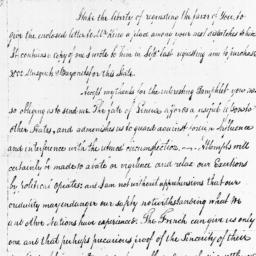 I take the liberty of requesting the favor of You, to
give the enclosed letter to Mr. King a place among your next dispatches to him
It contains copy of one I wrote to him in Septr. last requesting him to purchase
Muspuets & Bayonets for this State.
Accept my thanks for the interesting Pamphlet you were
so obliging as to send me. The fate of Geneva affords a useful lesson to
other States, and admonishes us to guard against foreign Influence
and interference with the utmost circumspection. — Attempts will
certainly be made to abate our vigilance and relax our Exertions
by political opiates; and I am not without apprehensions that our
credulity may endanger our safety notwithstanding what we
and other Nations have experienced. The French can give us only
one and that perhaps precarious proof of the Sincerity of their